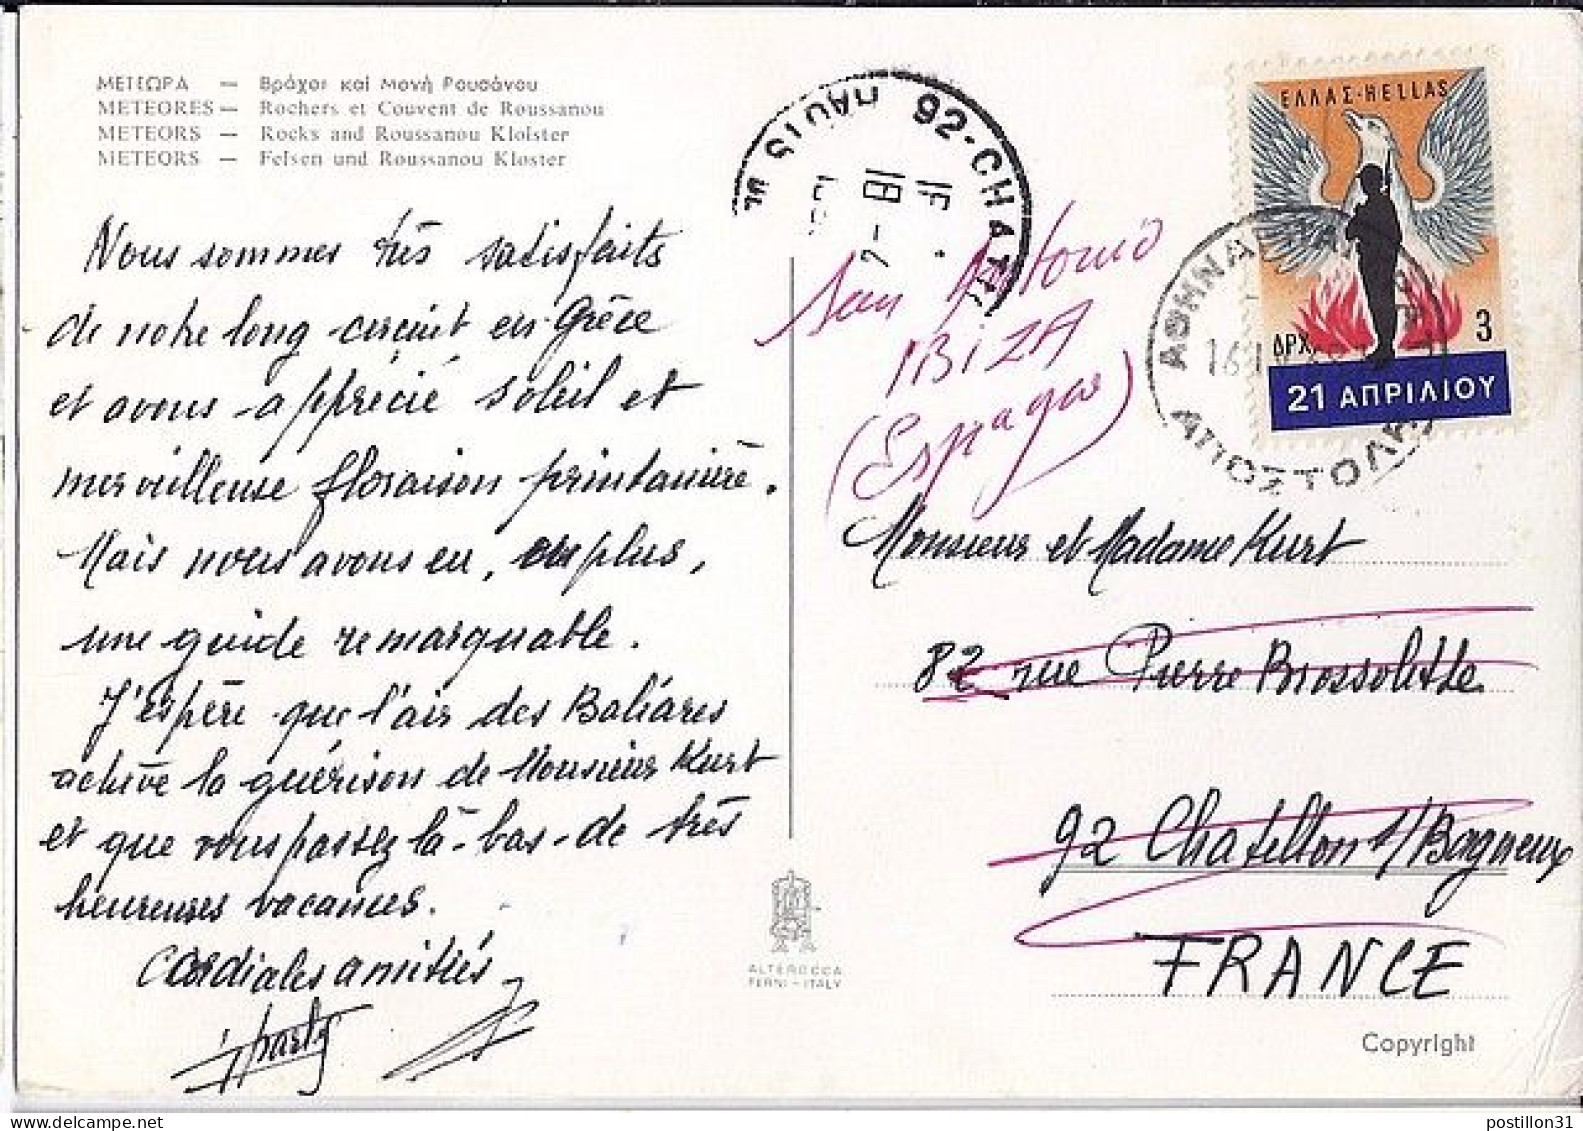 ΜΕΤΕΩΡΑ — Βράχοι καί Μονή Ρουσάνου
METEORES — Rochers et Couvent de Roussanou
METEORS — Rocks and Roussanou Kloister
METEORS — Felsen und Roussanou Kloster
Nous sommes très satisfaits
de notre long circuit en Grèce
et avons apprécié soleil et
merveilleuse floraison printanière.
Mais nous avons eu, en plus,
une guide remarquable.
J'espère que l'air des Baléares
achève la guérison de Monsieur Kurt
et que vous passez là-bas de très
heureuses vacances.
Cordiales amitiés
92-CHAT
18
ΕΛΛΑΣ-HELLAS
ΔΡΧ 3
21 ΑΠΡΙΛΙΟΥ
ΑΘΗΝΑ
16
ΑΠΟΣΤΟΛΗ
San Antonio
IBIZA
(Espagne)
Monsieur et Madame Kurt
82 rue Pierre Brossolette
92 Chatillon s/Bagneux
FRANCE
ALTEROCCA
TERNI-ITALY
Copyright
postillon31